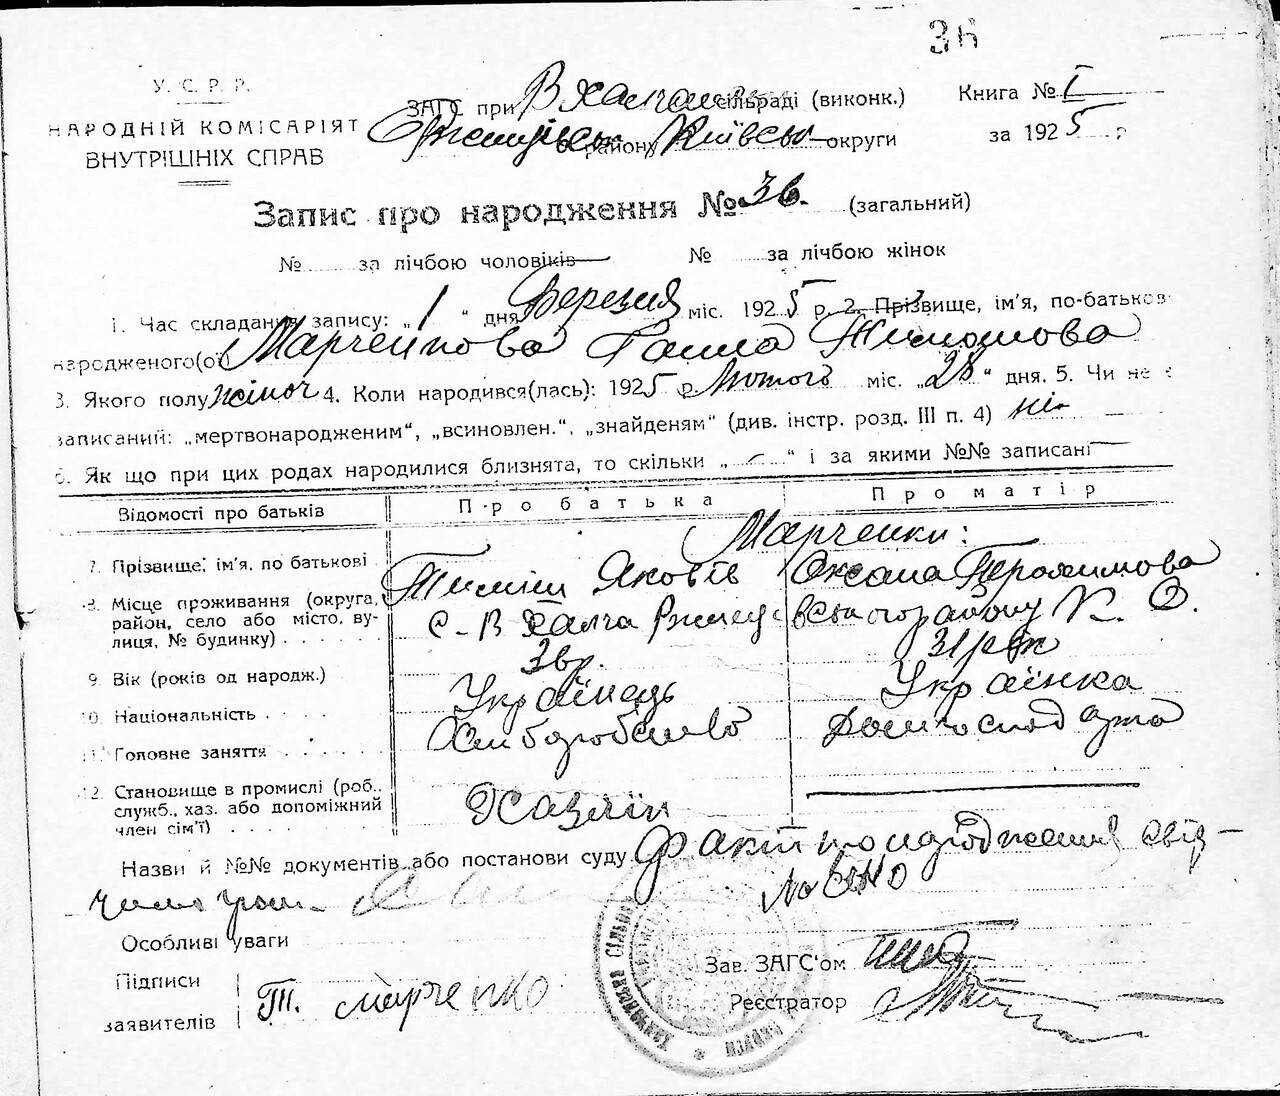 36
У. С. Р. Р.
НАРОДНІЙ КОМІСАРІЯТ
ВНУТРІШНІХ СПРАВ
ЗАГС при В Халчан сільраді (виконк.)
району Київськ округи
Книга № I
за 1925 р
Запис про народження № 36. (загальний)
№ за лічбою чоловіків № за лічбою жінок
1. Час складання запису: „1“ дня Березня міс. 1925 р. 2. Прізвище, ім'я, по-батьков
народженого(ої) Марченкова Ганна Тимошова
3. Якого полу жіноч 4. Коли народився(лась): 1925 р Лютого міс. „28“ дня. 5. Чи не є
записаний: „мертвонародженим“, „всиновлен.“, „знайденям“ (див. інстр. розд. III п. 4) ні
6. Як що при цих родах народилися близнята, то скільки „ “ і за якими №№ записані
Відомості про батьків Про батька Про матір
Марченки:
7. Прізвище, ім'я, по батькові Тиміш Яковів Оксана Трохимова
8. Місце проживання (округа, район, село або місто, вулиця, № будинку) с-В Халча Ржищевського району К. О.
9. Вік (років од народж.) 36р. 31рік
10. Національність Українець Українка
11. Головне заняття Хліборобство Домгосподарка
12. Становище в промислі (роб., служб., хаз. або допоміжний член сім'ї) Хазяїн
Назви й №№ документів або постанови суду Факт про народження свід-
Особливі уваги
Підписи
заявителів Т. Марченко
Зав. ЗАГС'ом
Реєстратор